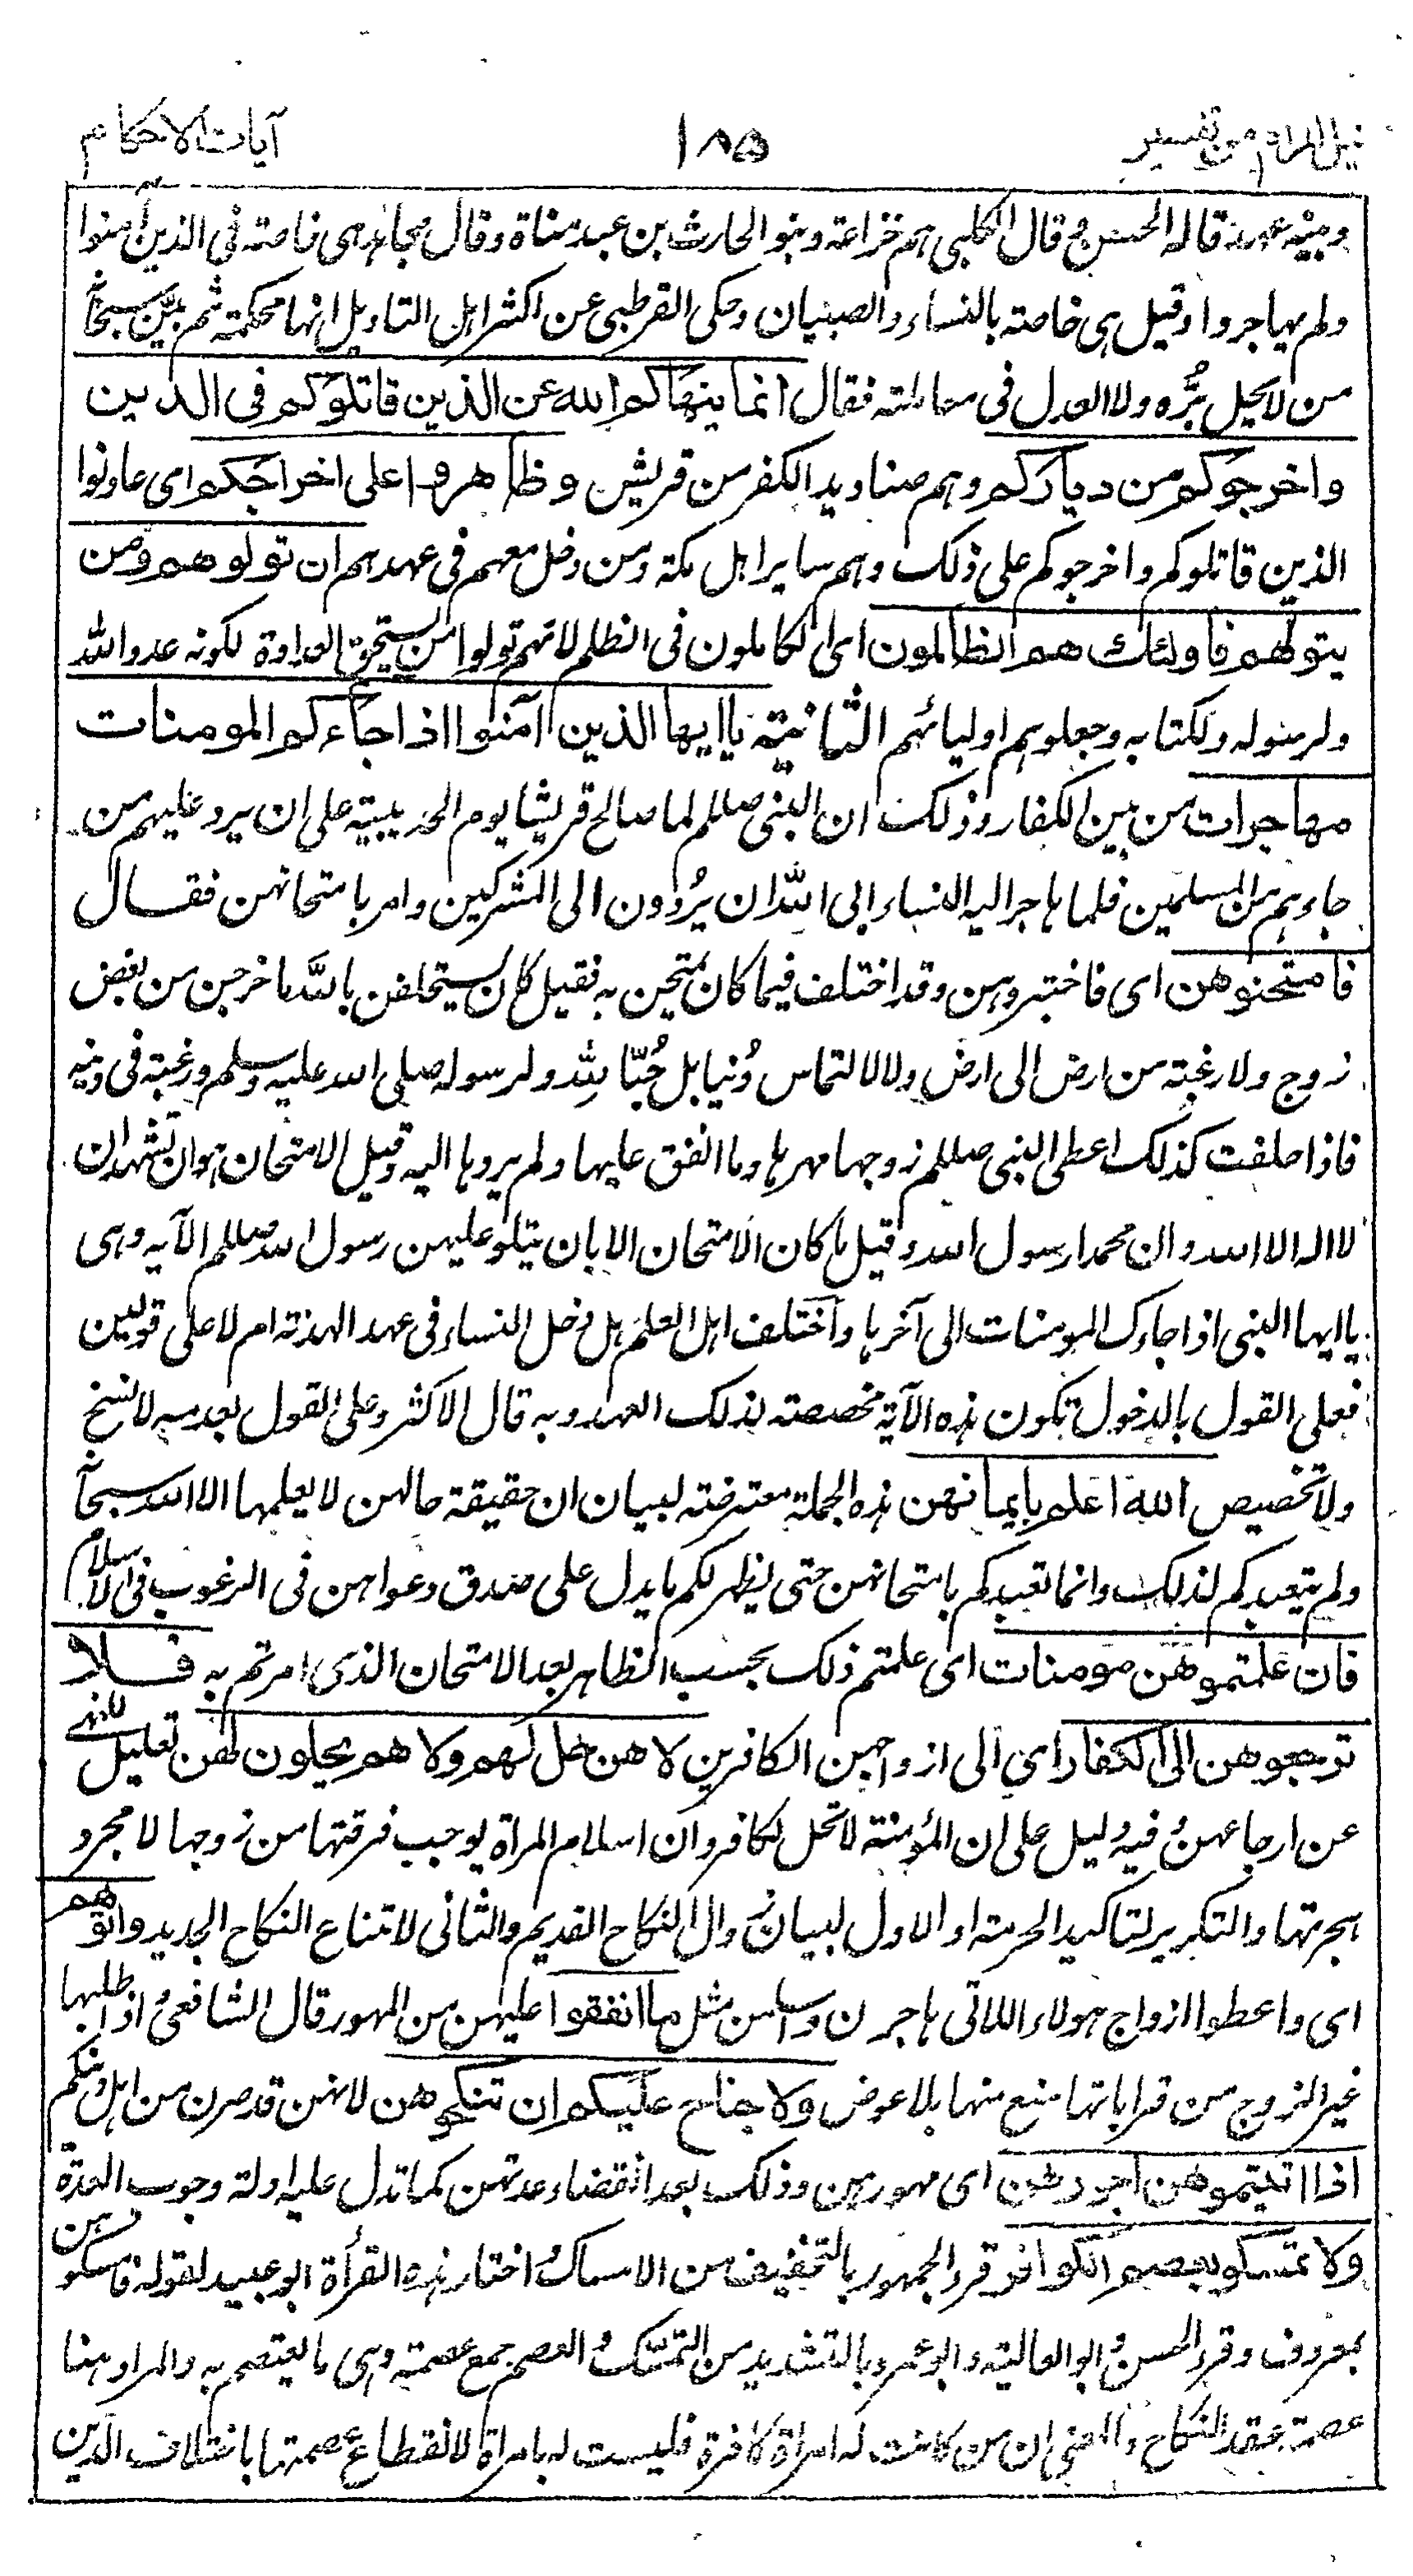 نيل المرام من تفسير ١٨٥ آيات الاحكام
وبينه عهد قاله الحسن وقال الكلبي هم خزاعة وبنو الحارث بن عبد مناة وقال مجاهد هى خاصة فى الذين آمنوا
ولم يهاجروا وقيل هى خاصة بالنساء والصبيان وحكى القرطبى عن اكثر اهل التاويل انها محكمة ثم بيّن سبحانه
من لا يحل بُّره ولا العدل فى معاملته فقال انما ينهاكم الله عن الذين قاتلوكم فى الدين
واخرجوكم من دياركم وهم صناديد الكفر من قريش وظاهروا على اخراجكم اى عاونوا
الذين قاتلوكم واخرجوكم على ذلك وهم ساير اهل مكة ومن دخل معهم فى عهدهم ان تولوهم ومن
يتولهم فاولئك هم الظالمون اى الكاملون فى الظلم لانهم تولوا من يستحق العداوة لكونه عدوا لله
ولرسوله ولكتابه وجعلوهم اوليائهم الثانية يا ايها الذين آمنوا اذا جاءكم المومنات
مهاجرات من بين الكفار وذلك ان النبى صللم لما صالح قريشا يوم الحديبية على ان يرد عليهم من
جاءهم من المسلمين فلما هاجر اليه النساء ابى الله ان يُردون الى المشركين وامر بامتحانهن فقال
فامتحنوهن اى فاختبروهن وقد اختلف فيما كان يمتحن به فقيل كان يستحلفن بالله ما خرجن من بغض
زوج ولا رغبة من ارض الى ارض ولا لالتماس دُنيا بل حُبّا لله ولرسوله صلى الله عليه وسلم ورغبة فى دينه
فاذا حلفت كذلك اعطى النبى صللم زوجها مهرها وما انفق عليها ولم يردها اليه وقيل الامتحان هو ان تشهد ان
لا اله الا الله وان محمدا رسول الله وقيل ما كان الامتحان الا بان يتلو عليهن رسول الله صللم الآيه وهى
يا ايها النبى اذا جاءك المومنات الى آخرها واختلف اهل العلم هل دخل النساء فى عهد الهدنة ام لا على قولين
فعلى القول بالدخول تكون هذه الآية مخصصة لذلك العهد وبه قال الاكثر وعلى القول بعدمه لا نسخ
ولا تخصيص الله اعلم بايمانهن هذه الجملة معترضة لبيان ان حقيقة حالهن لا يعلمها الا الله سبحانه
ولم يتعبدكم لذلك وانما تعبدكم بامتحانهن حتى يظهر لكم ما يدل على صدق دعواهن فى الرغوب فى الاسلام
فان علمتموهن مومنات اى علمتم ذلك بحسب الظاهر بعد الامتحان الذى امرتم به فلا
ترجعوهن الى الكفار اى الى ازواجهن الكافرين لا هن حل لهم ولا هم يحلون لهن تعليل للنهى
عن ارجاعهن وفيه دليل على ان المؤمنة لا تحل لكافر وان اسلام المراة يوجب فرقتها من زوجها لا مجرد
هجرتها والتكرير لتاكيد الحرمة او الاول لبيان زوال النكاح القديم والثانى لامتناع النكاح الجديد واتوهم
اى واعطوا ازواج هولاء اللاتى هاجرن واسلمن مثل ما انفقوا عليهن من المهور قال الشافعى واذا طلبها
غير الزوج من قراباتها منع منها بلا عوض ولا جناح عليكم ان تنكحوهن لانهن قد صرن من اهل دينكم
اذا اتيتموهن اجورهن اى مهورهن وذلك بعد انقضاء عدتهن كما تدل عليه ادلة وجوب العدة
ولا تمسكوا بعصم الكوافر قرء الجمهور بالتخفيف من الامساك واختار هذه القرأة ابو عبيد لقوله فامسكوهن
بمعروف وقرء الحسن وابو العالية وابو عمرو بالتشديد من التمسّك والعصم جمع عصمة وهى ما يعتصم به والمراد هنا
عصمة عقد النكاح والمعنى ان من كانت له امراة كافرة فليست له بامراة لانقطاع عصمتها باختلاف الدين